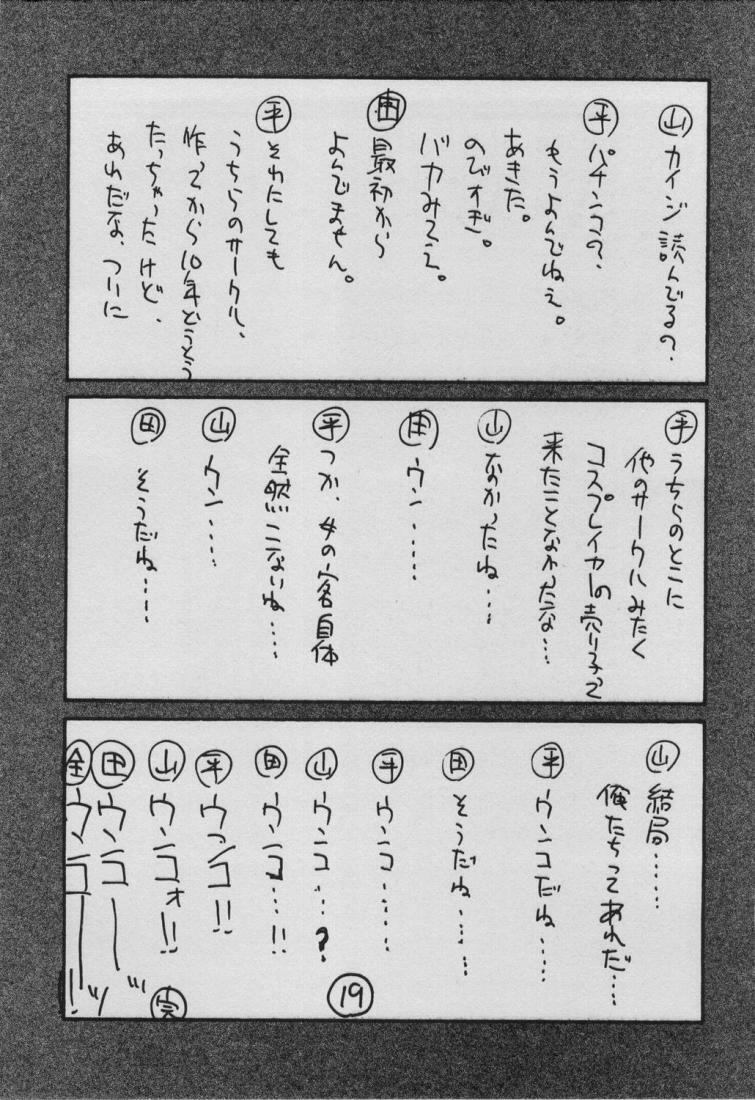 山 カイジ 読んでるの?
平 パチンコの?
もうよんでねえ。
あきた。
のびすぎ。
バカみてえ。
田 最初から
よんでません。
平 それにしても
うちらのサークル、
作ってから10年どうとう
たっちゃったけど、
あれだな、ついに
平 うちらのとこに
他のサークルみたく
コスプレイヤーの売り子って
来たことなかったな…
山 なかったね…
田 ウン……
平 つか、女の客自体
全然こないね……
山 ウン……
田 そうだね……
山 結局……
俺たちってあれだ…
平 ウンコだね……
田 そうだね……
平 ウンコ……
山 ウンコ…?
田 ウンコ…!!
平 ウンコ!!
山 ウンコォ!!
田 ウンコーッ
全 ウンコーッ!
完
19